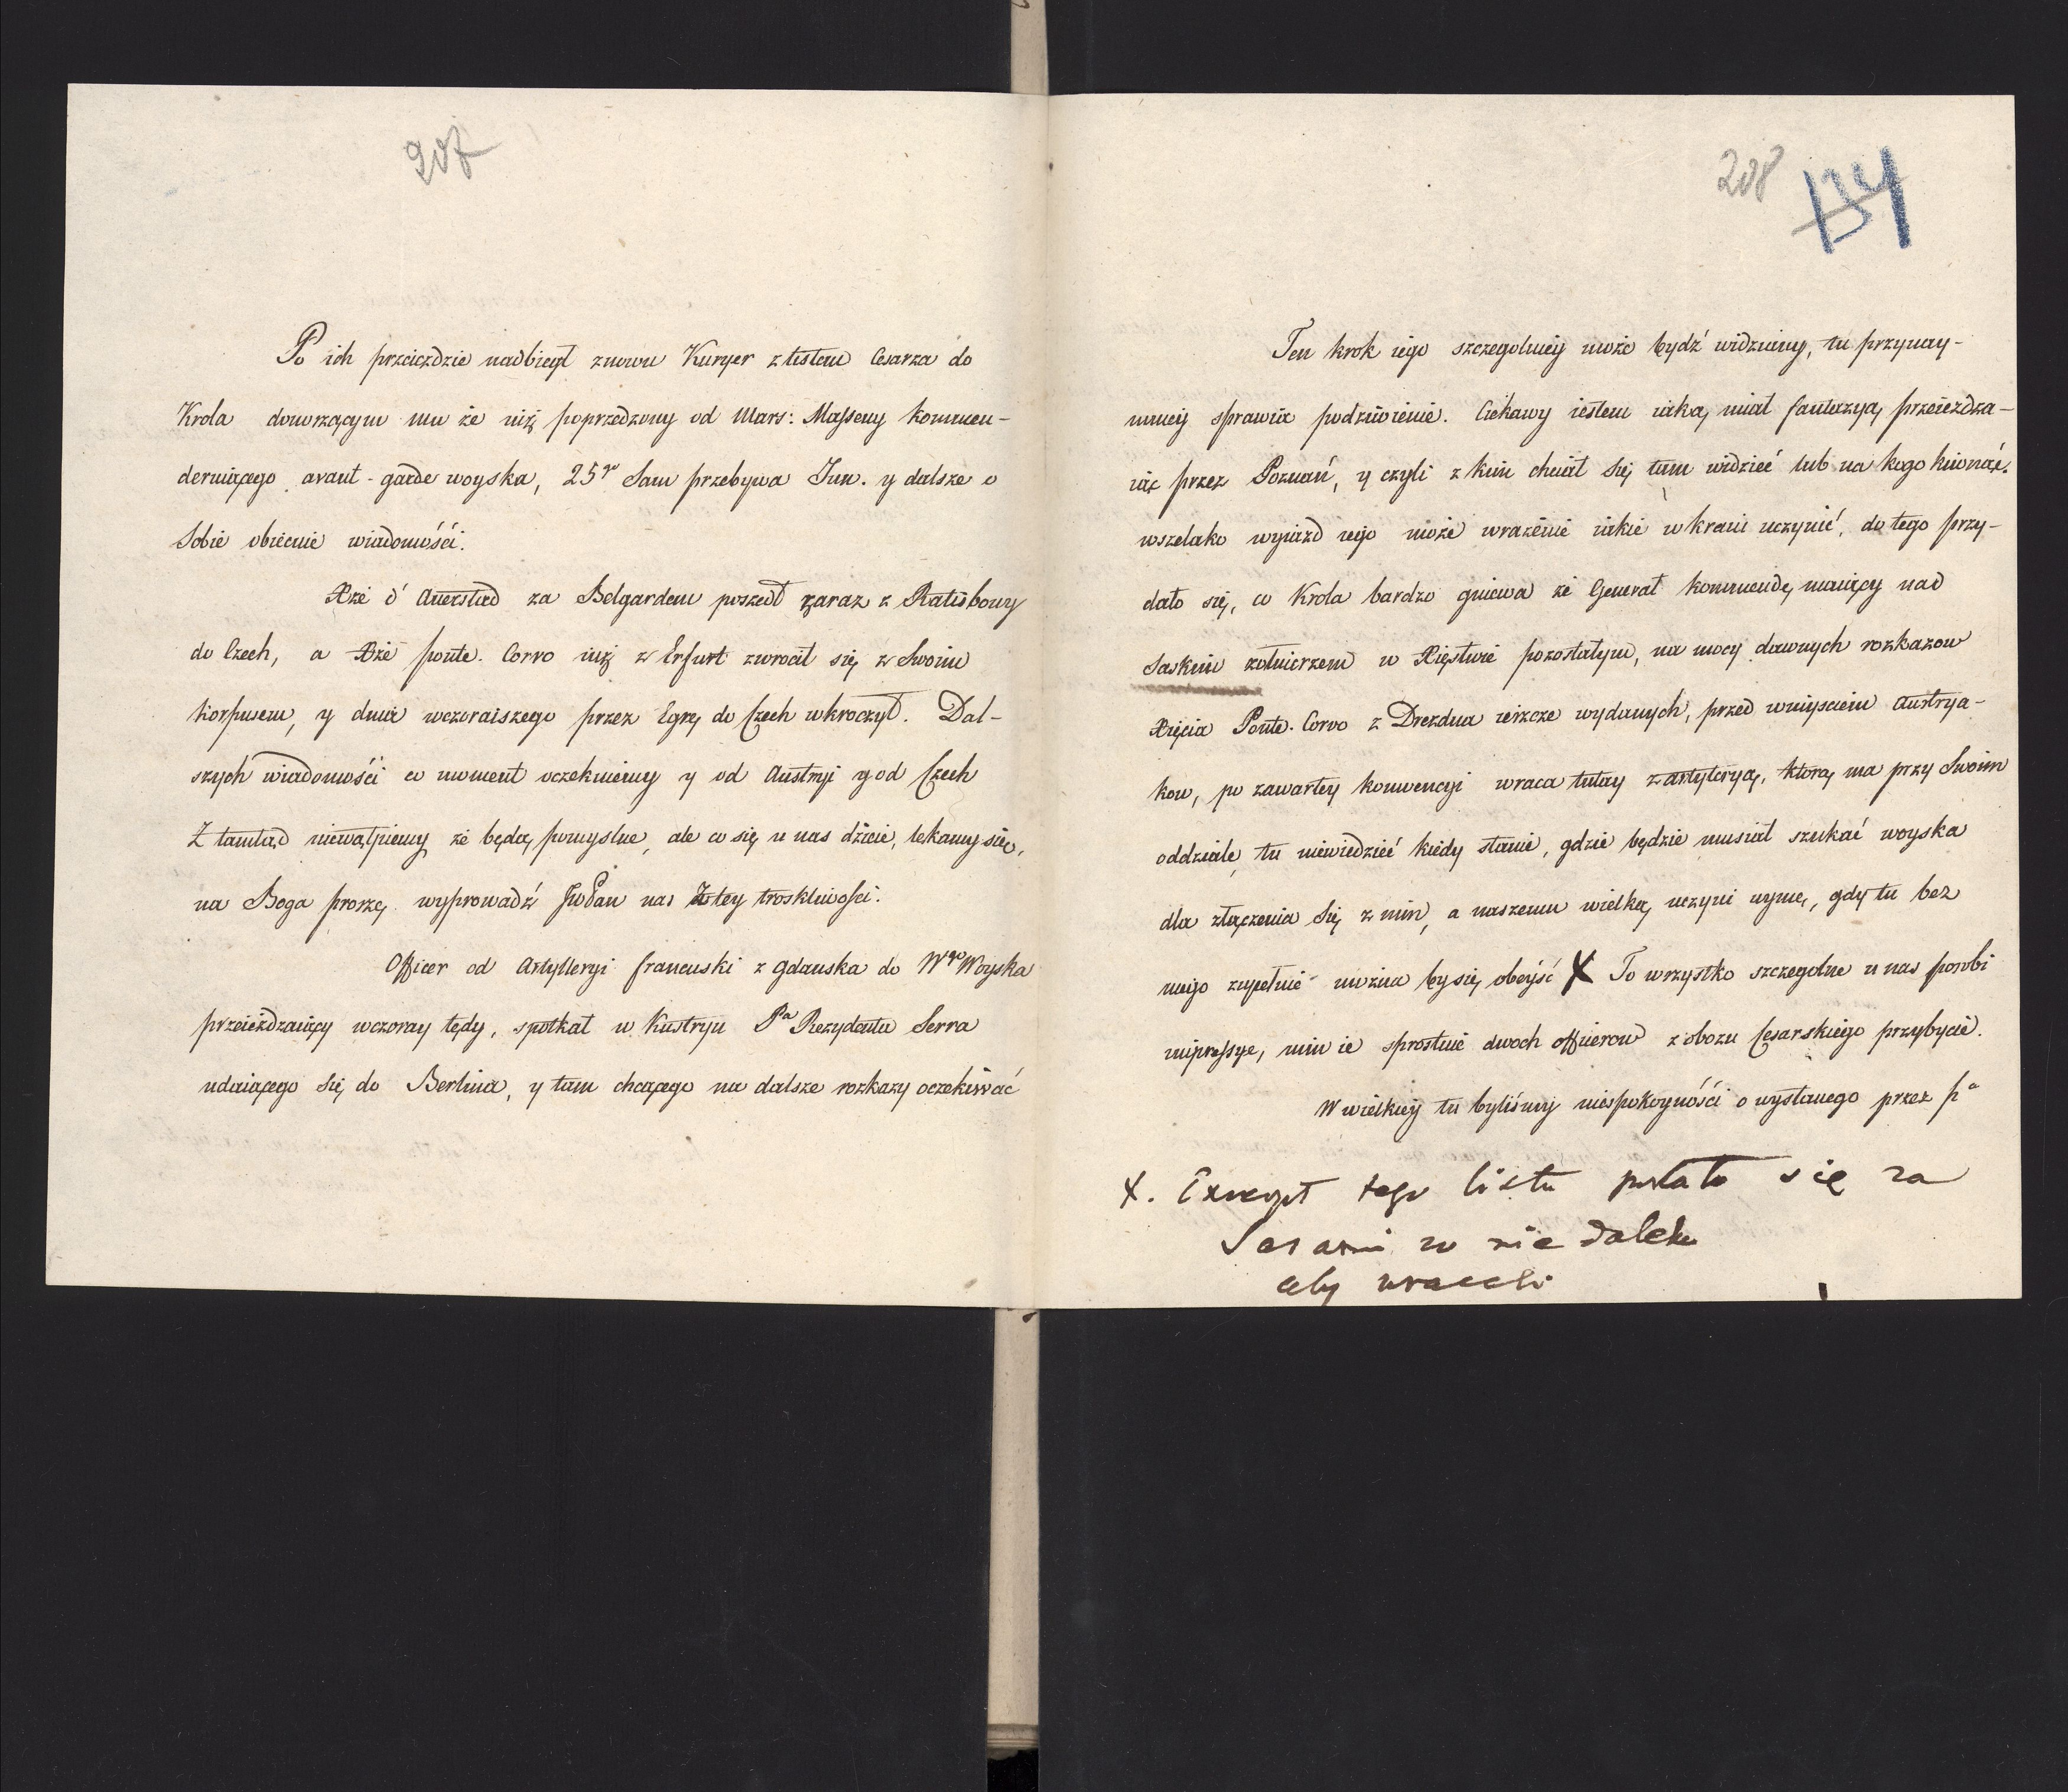 207
Po ich przeieździe nadbiegł znowu Kuryer z listem Cesarza do
Krola donoszącym mu że iuż poprzedzony od Mars: Masseny kommen-
deruiącego avant-garde woyska, 25go Sam przebywa Inn. y dalsze o
Sobie obiecuie wiadomości.
Xże d'Auerstad za Belgardem poszedł zaraz z Ratisbony
do Czech, a Xże ponte. Corvo iuż z Erfurt zwrocił się z Swoim
Korpusem, y dnia wczoraiszego przez Egrę do Czech wkroczył. Dal-
szych wiadomości co moment oczekuiemy y od Austryi y od Czech
Z tamtąd niewątpiemy że będą pomyslne, ale co się u nas dzieie, lękamy się,
na Boga proszę wyprowadź JWPan nas z tey troskliwości.
Officer od Artylleryi francuski z Gdanska do Wgo Woyska
przeieżdzaiący wczoray tędy, spotkał w Kustryn Pa Rezydenta Serra
udaiącego się do Berlina, y tam chcącego na dalsze rozkazy oczekiwać
208 134
Ten krok iego szczegolniey może bydź widziany, tu przynay-
mniey sprawia podziwienie. Ciekawy iestem iaką miał fantazyą przeieżdza-
iąc przez Poznań, y czyli z kim chciał się tam widzieć lub na kogo kiwnąć.
wszelako wyiazd iego może wrażenie iakie w kraiu uczynić, do tego przy-
dało się, co Krola bardzo gniewa że Generał kommendę maiący nad
Saskim żołnierzem w Xięstwie pozostałym, na mocy dawnych rozkazow
Xięcia Ponte. Corvo z Drezdna ieszcze wydanych, przed wniyściem Austrya-
kow, po zawartey konwencyi wraca tutay z artyleryą, którą ma przy Swoim
oddziale, tu niewiedzieć kiedy stanie, gdzie będzie musiał szukać woyska
dla złączenia się z nim, a naszemu wielką uczyni uymę, gdy tu bez
niego zupełnie można by się obeyść X To wszystko szczegolne u nas porobi
impressye, mimo ie sprostuie dwoch officierow z obozu Cesarskiego przybycie.
W wielkiey tu byliśmy niespokoyności o wysłanego przez Pa
X. Excerpt tego listu posłało się za
Sasami w nie daleku
aby wracali